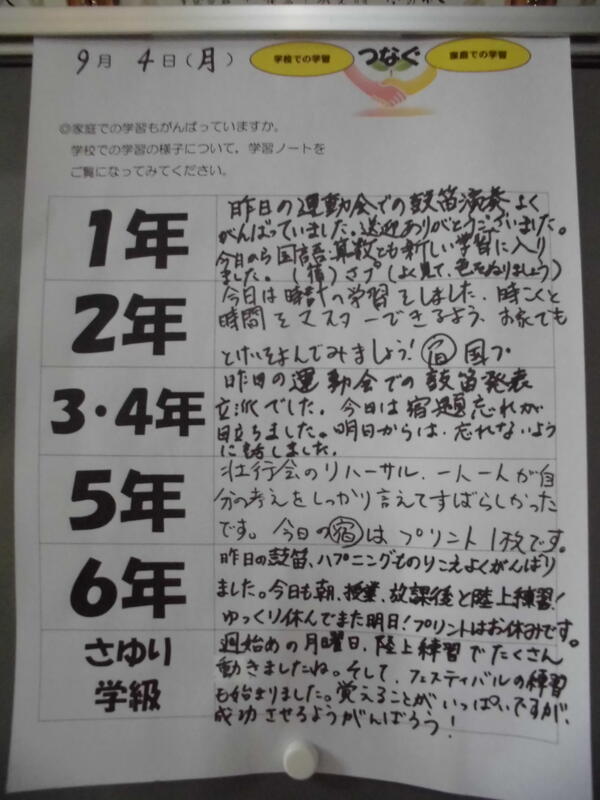 9月 4日(月)
学校での学習
つなぐ
家庭での学習
◎家庭での学習もがんばっていますか。
学校での学習の様子について,学習ノートを
ご覧になってみてください。
1年
昨日の運動会での鼓笛演奏よく
がんばっていました。送迎ありがとうございました。
今日から国語、算数とも新しい学習に入り
ました。(宿)さプ(よく見て、色をぬりましょう)
2年
今日は時計の学習をしました。時こくと
時間をマスターできるよう、お家でも
とけいをよんでみましょう!宿 国プ
3・4年
昨日の運動会での鼓笛発表
立派でした。今日は宿題忘れが
目立ちました。明日からは、忘れないよう
に話しました。
5年
壮行会のリハーサル、一人一人が自
分の考えをしっかり言えてすばらしかった
です。今日の宿はプリント1枚です。
6年
昨日の鼓笛、ハプニングものりこえよくがんばり
ました。今日も朝、授業、放課後と陸上練習!
ゆっくり休んでまた明日!プリントはお休みです。
さゆり
学級
週始めの月曜日、陸上練習でたくさん
動きましたね。そして、フェスティバルの練習
も始まりました。覚えることがいっぱいですが、
成功させるようがんばろう!